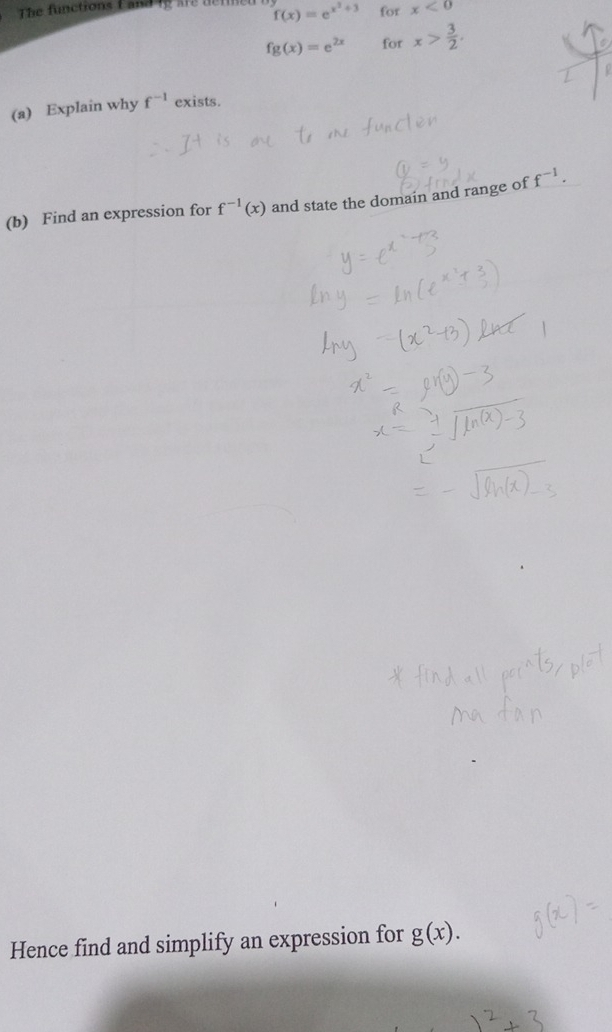 The functions f and fg are defined by
f(x) = e^{x²+3} for x < 0
fg(x) = e^{2x} for x > 3/2.
(a) Explain why f⁻¹ exists.
∴ It is one to one function
① = y
② find x
(b) Find an expression for f⁻¹(x) and state the domain and range of f⁻¹.
y = e^{x²+3}
ln y = ln(e^{x²+3})
lny = (x²+3) lne 1
x² = ln(y) - 3
R
x = ± √ln(x)-3
L
= - √ln(x)-3
* find all points, plot
Hence find and simplify an expression for g(x).
g(x) =
)² + 3